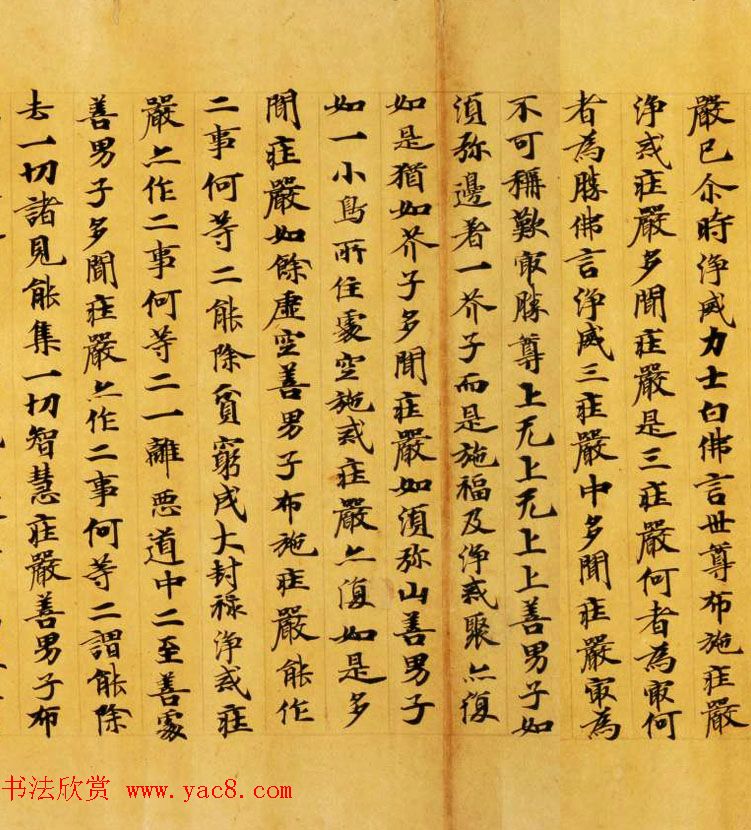 嚴已尒時浄威力士白佛言世尊布施莊嚴
浄戒莊嚴多聞莊嚴是三莊嚴何者為㝡何
者為勝佛言浄威三莊嚴中多聞莊嚴㝡為
不可稱歎㝡勝尊上无上无上上善男子如
須弥邊着一芥子而是施福及浄戒聚亦復
如是猶如芥子多聞莊嚴如須弥山善男子
如一小鳥所住處空施戒莊嚴亦復如是多
聞莊嚴如餘虛空善男子布施莊嚴能作
二事何等二能除貧窮成大封禄浄戒莊
嚴亦作二事何等二一離惡道中二至善處
善男子多聞莊嚴亦作二事何等二謂能除
去一切諸見能集一切智慧莊嚴善男子布
书法欣赏 www.yac8.com